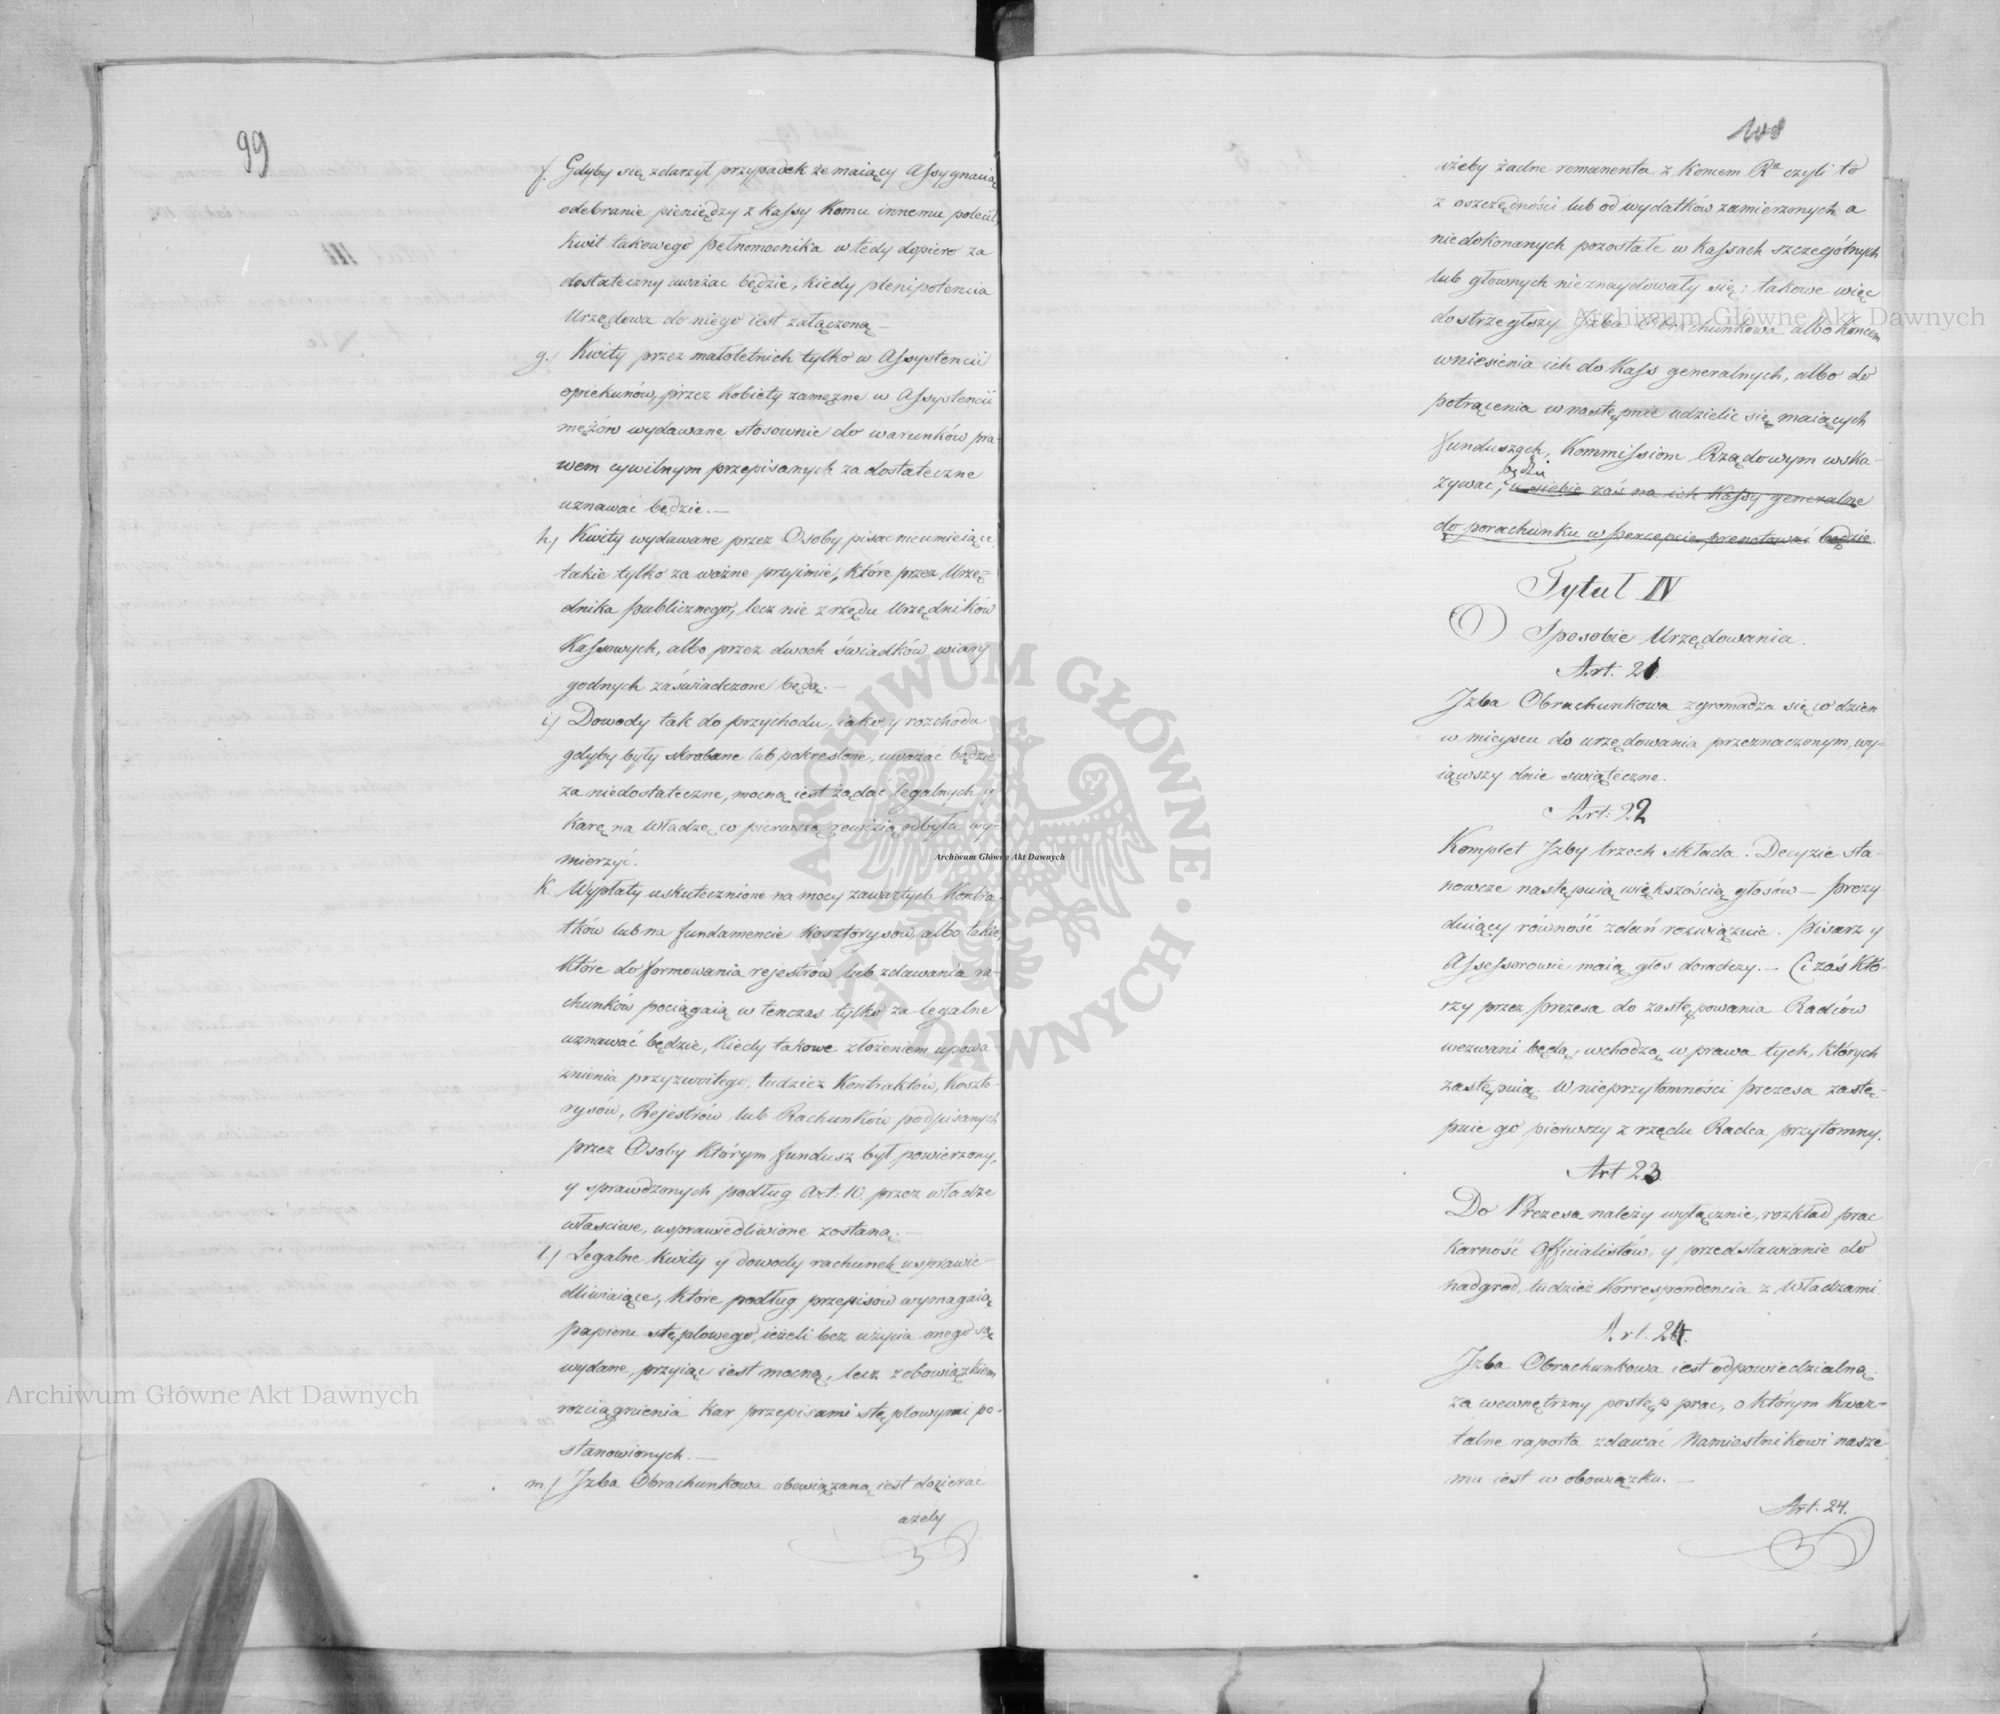 99
f. Gdyby się zdarzył przypadek że maiący Assygnacią
odebranie pieniędzy z Kassy komu innemu polecił,
kwit takowego pełnomocnika wtedy dopiero za
dostateczny uważać będzie, kiedy plenipotencia
Urzędowa do niego iest załączoną —
g.) Kwity przez małoletnich tylko w Assystencii
opiekunów, przez Kobiety zamężne w Assystencii
mężów wydawane stosownie do warunków pra-
wem cywilnym przepisanych za dostateczne
uznawać będzie. —
h) Kwity wydawane przez Osoby pisać nieumieiące,
takie tylko za ważne przyimie, które przez Urzę-
dnika publicznego, lecz nie z rzędu Urzędników
Kassowych, albo przez dwoch świadków wiary
godnych zaświadczone będą. —
i) Dowody tak do przychodu, iako y rozchodu
gdyby były skrobane lub pokreslone, uważać będzie
za niedostateczne, mocną iest żądać legalnych y
karę na Władzę co pierwszą rewizią odbyła wy-
mierzyć.
K. Wypłaty uskutecznione na mocy zawartych Kontra-
któw lub na fundamencie Kosztorysow, albo takie,
które do formowania rejestrow lub zdawania ra-
chunków pociągaią w tenczas tylko za legalne
uznawać będzie, kiedy takowe złożeniem upowa-
żnienia przyzwoitego, tudzież Kontraktów, Koszto-
rysów, Rejestrów lub Rachunków podpisanych
przez Osoby którym fundusz był powierzony,
y sprawdzonych podług Art: 10. przez władze
właściwe, usprawiedliwione zostaną. —
l.) Legalne Kwity y dowody rachunek usprawie-
dliwiaiące, które podług przepisów wymagaią
papieru stęplowego, ieżeli bez użycia onego są
wydane, przyiąć iest mocną, lecz z obowiązkiem
rozciągnienia kar przepisami stęplowymi po-
stanowionych. —
m) Jzba Obrachunkowa obowiązaną iest dozierać
ażeby
100
ażeby żadne remanenta z końcem Rª czyli to
z oszczędności lub od wydatków zamierzonych a
niedokonanych pozostałe w Kassach szczególnych
lub głownych nieznaydowały się; takowe więc
dostrzegłszy Jzba Obrachunkowa albo końcem
wniesienia ich do Kass generalnych, albo do
potrącenia w następnie udzielić się maiących
funduszach, Kommissiom Rządowym wska-
będzie
zywać, u siebie zaś na ich Kassy generalne
do porachunku w percepcie prenotować będzie.
Tytuł IV
O Sposobie Urzędowania.
Art. 21.
Jzba Obrachunkowa zgromadza się co dzień
w mieyscu do urzędowania przeznaczonym, wy-
iąwszy dnie swiąteczne.
Art: 22
Komplet Jzby trzech składa. Decyzie sta-
nowcze następuią większością głosów — prezy-
duiący równość zdań rozwiązuie. Pisarz y
Assessorowie maią głos doradczy. — Ci zaś któ-
rzy przez Prezesa do zastępowania Radców
wezwani będą, wchodzą w prawa tych, których
zastępuią. W nieprzytomności Prezesa zastę-
puie go pierwszy z rzędu Radca przytomny.
Art 23
Do Prezesa należy wyłącznie, rozkład prac
karność Officialistów, y przedstawianie do
nadgrod, tudzież Korrespondencia z Władzami.
Art. 24.
Jzba Obrachunkowa iest odpowiedzialną
za wewnętrzny postęp prac, o którym kwar-
talne raporta zdawać Namiestnikowi nasze
mu iest w obowiązku. —
Art. 24.
Archiwum Główne Akt Dawnych
Archiwum Główne Akt Dawnych
Archiwum Główne Akt Dawnych
ARCHIWUM GŁÓWNE AKT DAWNYCH